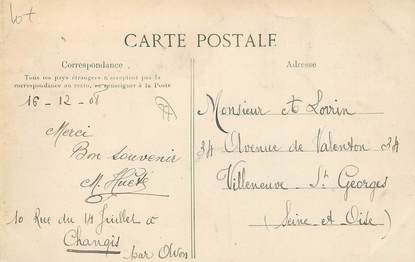 Lot
CARTE POSTALE
Correspondance
Tous les pays étrangers n'acceptent pas la
correspondance au recto, se renseigner à la Poste
16-12-08
Merci
Bon souvenir
M. Hueté
10 Rue du 14 Juillet à
Changis
par Avon
Adresse
Monsieur A Lorin
34 Avenue de Valenton 34
Villeneuve St Georges
(Seine et Oise)